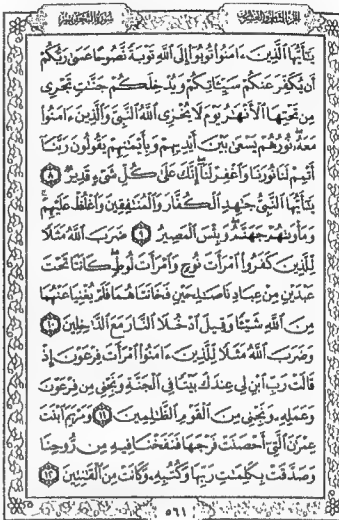 الجزء الثامن والعشرون
سورة التحريم
يَٰٓأَيُّهَا ٱلَّذِينَ ءَامَنُوا۟ تُوبُوٓا۟ إِلَى ٱللَّهِ تَوْبَةً نَّصُوحًا عَسَىٰ رَبُّكُمْ
أَن يُكَفِّرَ عَنكُمْ سَيِّـَٔاتِكُمْ وَيُدْخِلَكُمْ جَنَّٰتٍ تَجْرِى
مِن تَحْتِهَا ٱلْأَنْهَٰرُ يَوْمَ لَا يُخْزِى ٱللَّهُ ٱلنَّبِىَّ وَٱلَّذِينَ ءَامَنُوا۟
مَعَهُۥ نُورُهُمْ يَسْعَىٰ بَيْنَ أَيْدِيهِمْ وَبِأَيْمَٰنِهِمْ يَقُولُونَ رَبَّنَآ
أَتْمِمْ لَنَا نُورَنَا وَٱغْفِرْ لَنَآ إِنَّكَ عَلَىٰ كُلِّ شَىْءٍ قَدِيرٌ ٨
يَٰٓأَيُّهَا ٱلنَّبِىُّ جَٰهِدِ ٱلْكُفَّارَ وَٱلْمُنَٰفِقِينَ وَٱغْلُظْ عَلَيْهِمْ
وَمَأْوَىٰهُمْ جَهَنَّمُ وَبِئْسَ ٱلْمَصِيرُ ٩ ضَرَبَ ٱللَّهُ مَثَلًا
لِّلَّذِينَ كَفَرُوا۟ ٱمْرَأَتَ نُوحٍ وَٱمْرَأَتَ لُوطٍ كَانَتَا تَحْتَ
عَبْدَيْنِ مِنْ عِبَادِنَا صَٰلِحَيْنِ فَخَانَتَاهُمَا فَلَمْ يُغْنِيَا عَنْهُمَا
مِنَ ٱللَّهِ شَيْـًٔا وَقِيلَ ٱدْخُلَا ٱلنَّارَ مَعَ ٱلدَّٰخِلِينَ ١٠
وَضَرَبَ ٱللَّهُ مَثَلًا لِّلَّذِينَ ءَامَنُوا۟ ٱمْرَأَتَ فِرْعَوْنَ إِذْ
قَالَتْ رَبِّ ٱبْنِ لِى عِندَكَ بَيْتًا فِى ٱلْجَنَّةِ وَنَجِّنِى مِن فِرْعَوْنَ
وَعَمَلِهِۦ وَنَجِّنِى مِنَ ٱلْقَوْمِ ٱلظَّٰلِمِينَ ١١ وَمَرْيَمَ ٱبْنَتَ
عِمْرَٰنَ ٱلَّتِىٓ أَحْصَنَتْ فَرْجَهَا فَنَفَخْنَا فِيهِ مِن رُّوحِنَا
وَصَدَّقَتْ بِكَلِمَٰتِ رَبِّهَا وَكُتُبِهِۦ وَكَانَتْ مِنَ ٱلْقَٰنِتِينَ ١٢
٥٦١